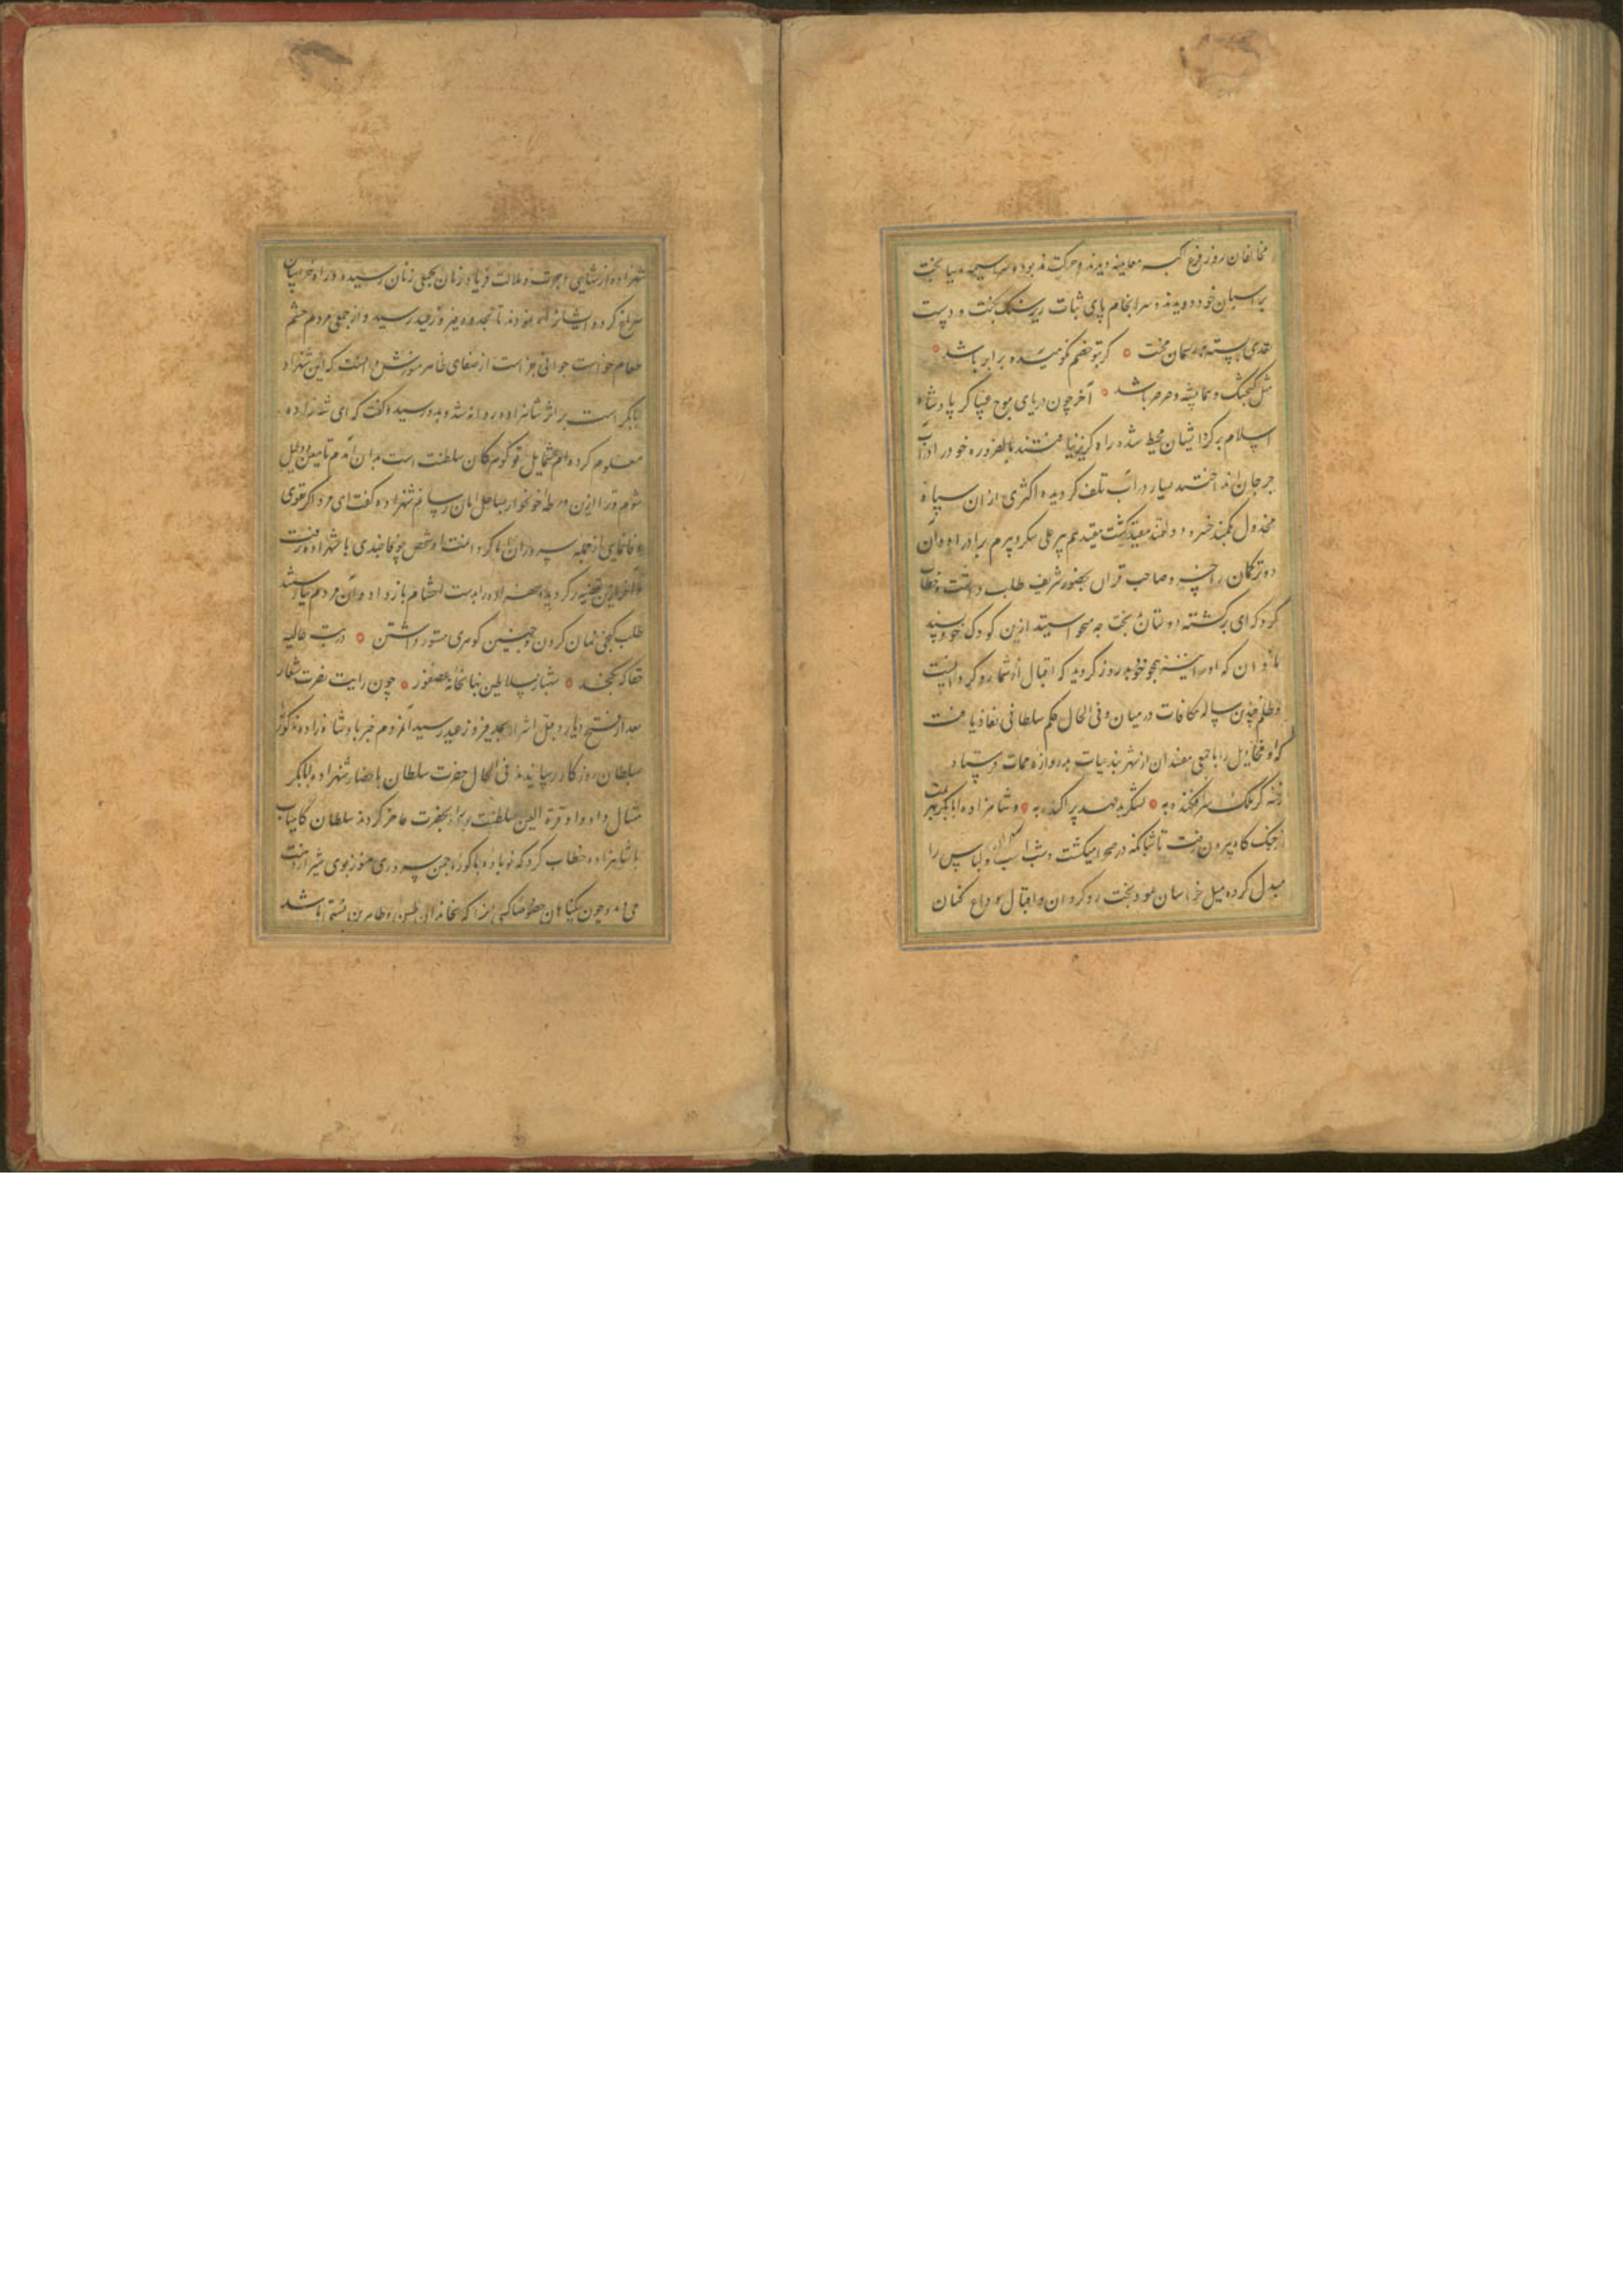 مخالفان روز فزع اکبر معاینه دیدند و حرکت مذبوده سراسیمه بپا بخت
بر اسبان خود دویدند و سرانجام پای ثبات زیر سنک نکبت و دست
تعدی بسته ریسمان محنت ○ کر بتو خصم نکوهیده برابر باشد ○
مثل کنجشک و هما پشه و صرصر باشد ○ آخر چون دریای موج فنا کر پادشاه
اسلام بر کرد ایشان محیط شده راه کریز نیافتند بالضروره خود را در آب
جرجان انداختند بسیار در آب تلف کردیده اکثری از آن سپاه
مخذول بکمند خسرو دولتمند مقید کشت مقیدهم پیر علی سکر و بیرم برادر او و آن
ده ترکمان را خسرو صاحب قران بحضور شریف طلب داشت و خطاب
کرد که ای برکشته دولتان بخت چه میخواستید ازین کودک خود پسند
نادان که او را نیز همچو خود بد روز کردید که اقبال از شما رو کردانست
و ظلم چندین ساله مکافات در میان و فی الحال حکم سلطانی نفاذ یافت
که او مخاذیل را با جمعی مفسدان از شهربند حیات بدروازه ممات فرستاد
فتنه کر ملک سرافکنده به ○ لشکر بد عهد پراکنده به ○ و شاهزاده ابابکر بهزیمت
از جنک کاه بیرون رفت تا شبانکه در صحرا میکشت و شب اسب و لباس را
مبدل کرده میل خراسان نمود بخت روکردان و اقبال وداع کنان
شهزاده از شاهی و ملالت فریاد زنان بجمعی زنان رسیده و راه خراسان
سراغ کرده ایشان راه نمودند تا بحدود فیروزعید رسید و از جمعی مردم حشم
طعام خواست جوانی از صفای ظاهر دانست که این شهزاده
ابابکر است بر اثر شاهزاده روانه شد و بدو رسید و کفت که ای شاهزاده
معلوم کرده ام شمایل تو کوهر کان سلطنت است بدان آمدم تا معین و دلیل
شوم و ترا ازین ورطه خونخوار بساحل امان رسانم شهزاده کفت ای مرد اکر تقوی
وفا نمایی از جمله سروران کردانمت آن شخص جفاجو چندی با شهزاده رفت
و آخر ازین قضیه برکردیده شهزاده را بدست احشام باز داد و آن مردم نیارستند
طلب کنجی نهان کردن و چنین کوهری مستور داشتن ○ در بیت عالیه
حقا که نکنجد ○ شهباز سلاطین بنهانخانه عصفور ○ چون رایت نصرت شعار
بعد از فتح دیار و قتل اشرار بحد فیروزعید رسید آن مردم خبر پادشاه زاده مذکور
سلطان روزکار رسانیدند فی الحال حضرت سلطان باحضار شهزاده ابابکر
مثال داد و او قرة العین سلطنت را بحضرت حاضر کردند سلطان کامیاب
با شاهزاده خطاب کرد که نوباوه باکوره چمن سروری هنوز بوی شیر از دهنت
می دمد و خون بیکناهان خصوصا کسی را که بخاندان طیبین و طاهرین منتمی باشد